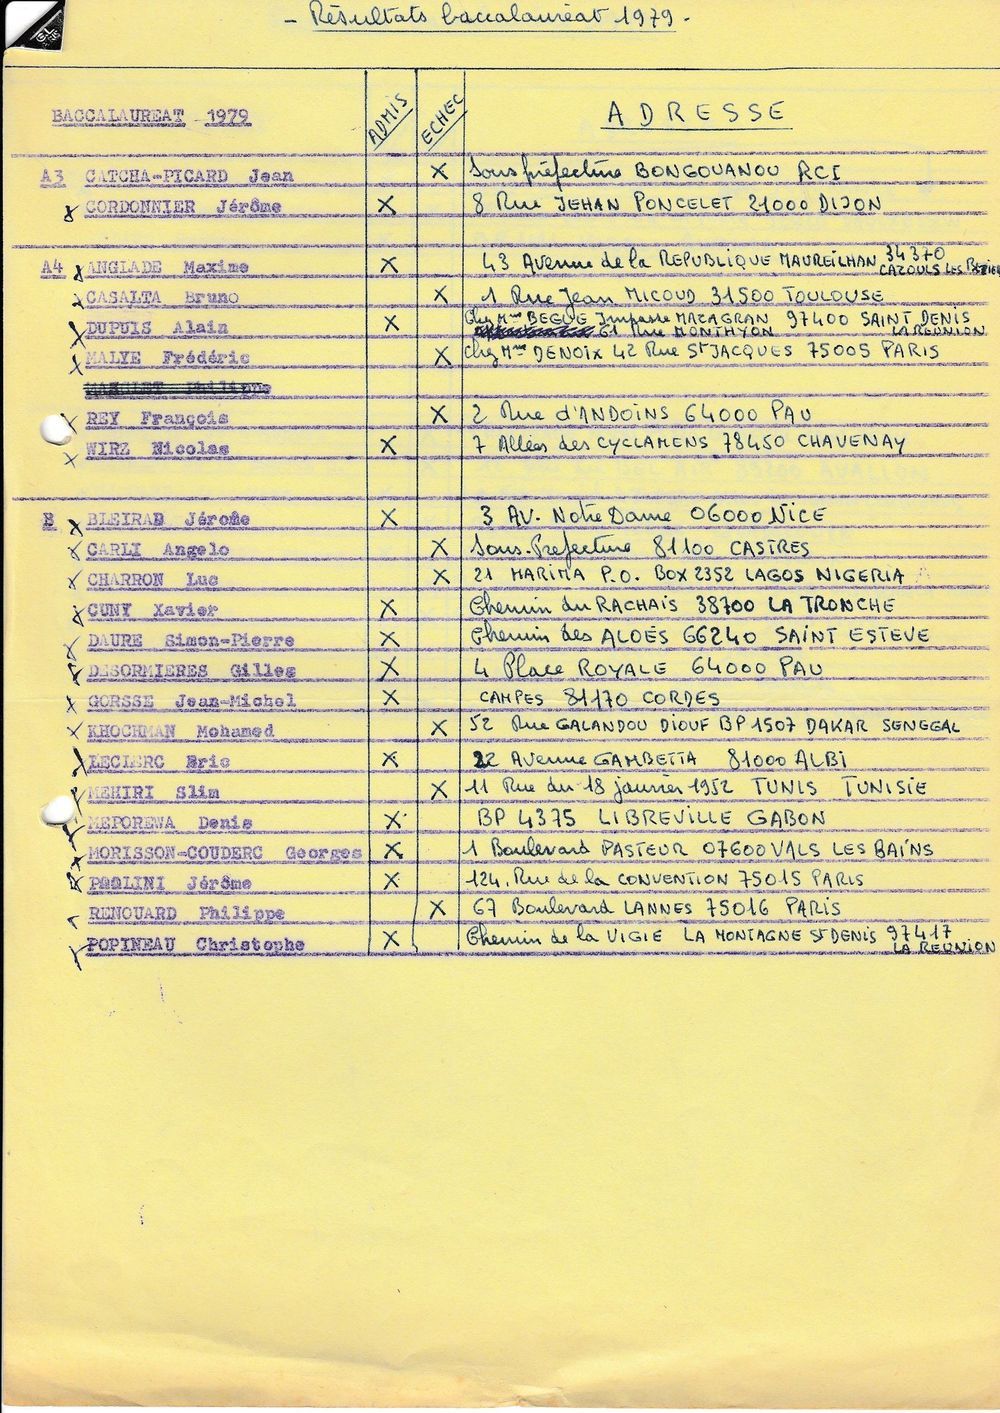 - Résultats baccalauréat 1979 -
BACCALAUREAT 1979 ADMIS ECHEC ADRESSE
A3 CATCHA-PICARD Jean X Sous préfecture BONGOUANOU RCI
CORDONNIER Jérôme X 8 Rue JEHAN PONCELET 21000 DIJON
A4 ANGLADE Maxime X 43 Avenue de la REPUBLIQUE MAUREILHAN 34370
CAZOULS LES BEZIERS
CASALTA Bruno X 1 Rue Jean MICOUD 31500 TOULOUSE
Chez Mme BEGUE Impasse MAZAGRAN 97400 SAINT DENIS
DUPUIS Alain X 61 Rue MONTHYON LA REUNION
MALYE Frédéric X Chez Mme DENOIX 42 Rue St JACQUES 75005 PARIS
Philippe
REY François X 2 Rue d'ANDOINS 64000 PAU
WIRZ Nicolas X 7 Allées des CYCLAMENS 78450 CHAVENAY
B BLEIRAD Jérome X 3 AV. Notre Dame 06000 NICE
CARLI Angelo X Sous-Préfecture 81100 CASTRES
CHARRON Luc X 21 MARINA P.O. BOX 2352 LAGOS NIGERIA
CUNY Xavier X Chemin du RACHAIS 38700 LA TRONCHE
DAURE Simon-Pierre X Chemin des ALOES 66240 SAINT ESTEVE
DESORMIERES Gilles X 4 Place ROYALE 64000 PAU
GORSSE Jean-Michel X CAMPES 81170 CORDES
KHOCHMAN Mohamed X 52 Rue GALANDOU DIOUF BP 1507 DAKAR SENEGAL
LECLERC Eric X 22 Avenue GAMBETTA 81000 ALBI
MEHIRI Slim X 11 Rue du 18 janvier 1952 TUNIS TUNISIE
MEPOREWA Denis X BP 4375 LIBREVILLE GABON
MORISSON-COUDERC Georges X 1 Boulevard PASTEUR 07600 VALS LES BAINS
PAOLINI Jérôme X 124, Rue de la CONVENTION 75015 PARIS
RENOUARD Philippe X 67 Boulevard LANNES 75016 PARIS
POPINEAU Christophe X Chemin de la VIGIE LA MONTAGNE St DENIS 97417
LA REUNION